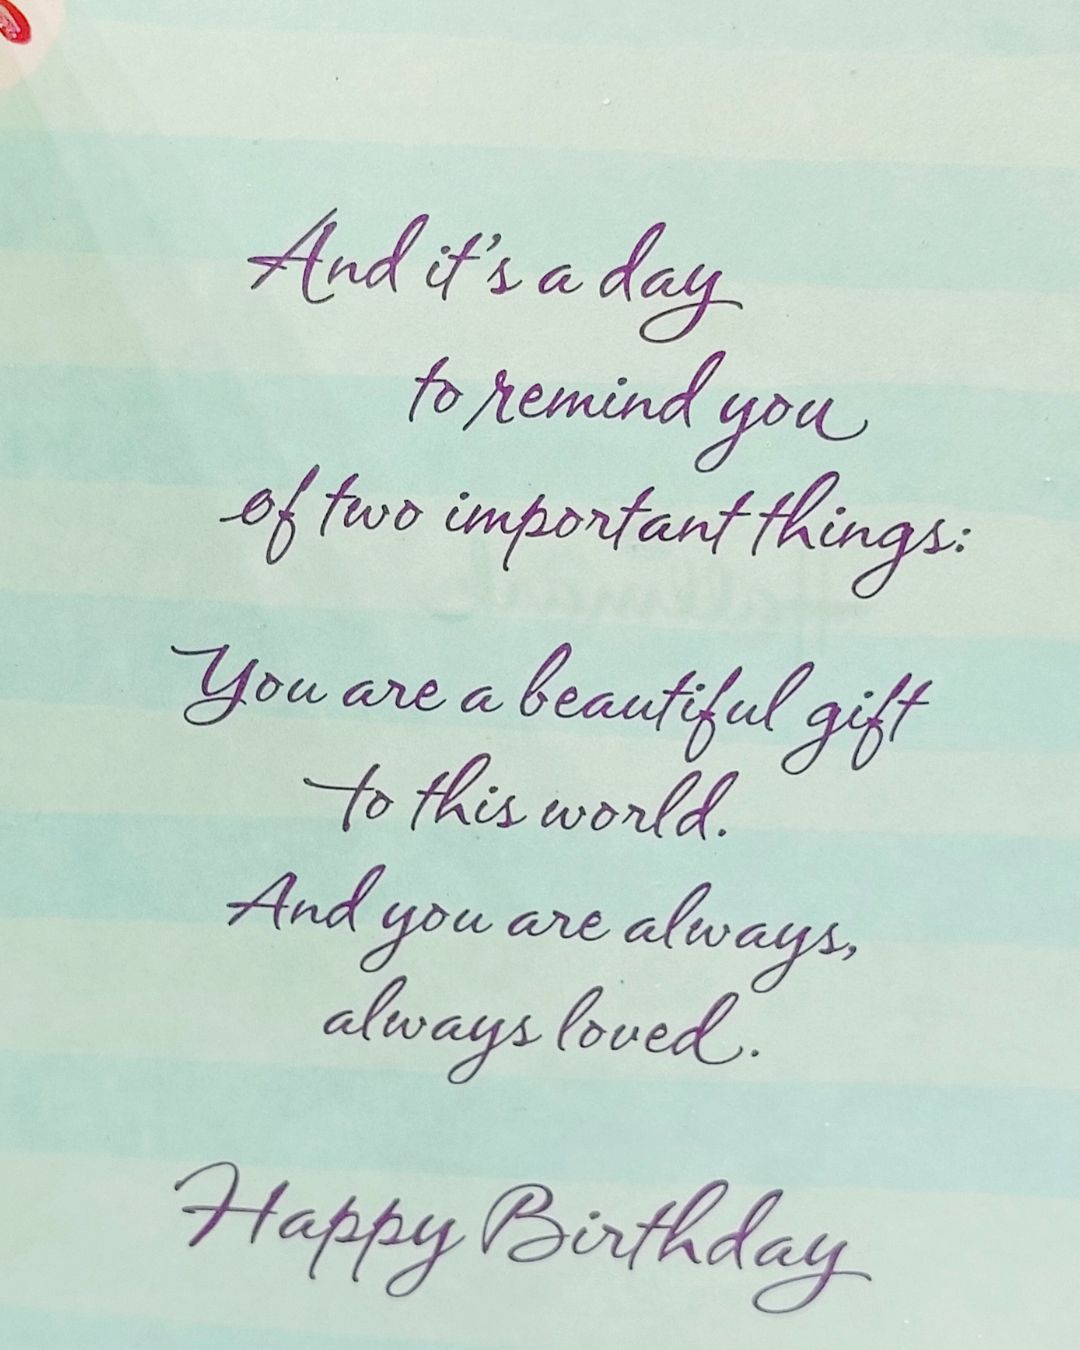 And it's a day
to remind you
of two important things:
You are a beautiful gift
to this world.
And you are always,
always loved.
Happy Birthday